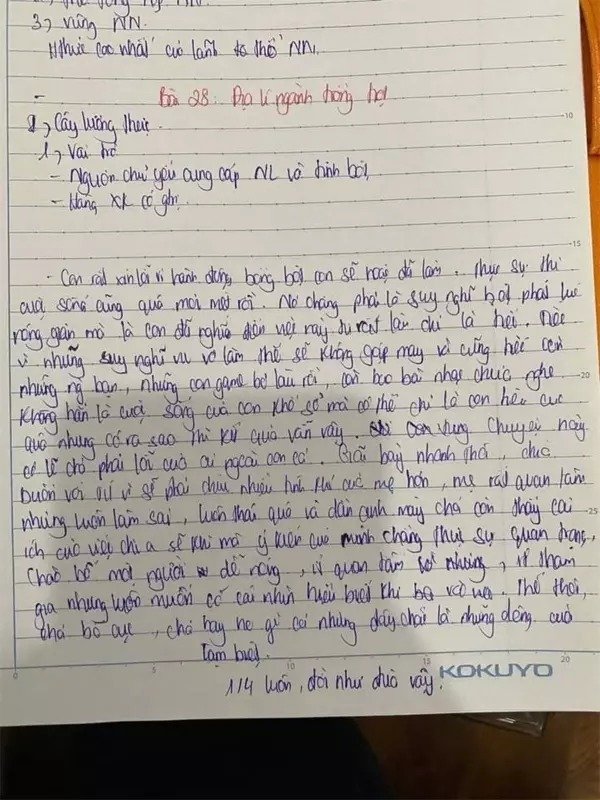 3, vùng NN.
Hthức cao nhất của lãnh thổ NN.
- Bài 28: Địa lí ngành trồng trọt
I, Cây lương thực.
1, Vai trò
- Nguồn chủ yếu cung cấp NL và tinh bột,
- Hàng XK có giá.
- Con rất xin lỗi vì hành động bồng bột con sẽ hoặc đã làm. Thực sự thì
cuộc sống cũng quá mới mệt rồi. Nó chẳng phải là suy nghĩ bột phát lúc
nóng giận mà là con đã nghĩ đến việc này từ rất lâu chỉ là hơi. Tiếc
vì những suy nghĩ vu vơ làm thế sẽ không gặp may vì cũng hết
những ng bạn, những con game bỏ lâu rồi, còn bao bài nhạc chưa nghe
Không hẳn là cuộc sống của con khổ sở mà có thể chỉ là con tiêu cực
quá nhưng có ra sao thì kết quả vẫn vậy. Chuyện này
có lẽ chả phải lỗi của ai ngoài con cả. Giãi bày nhanh thôi, chắc
buồn với vì sẽ phải chịu nhiều tính khí của mẹ hơn, mẹ rất quan tâm
nhưng luôn làm sai, luôn thái quá và dần chả còn thấy cái
ích của việc chia sẻ khi mà ý kiến của mình chẳng thực sự quan trọng,
Chào bố một người dễ nóng, ít quan tâm nhưng, ít tham
gia nhưng luôn muốn có cái nhìn hiểu biết khi Thế thôi,
chả bố cục, chả hay ho gì cả nhưng đây chắc là những dòng cuối
Tạm biệt.
1/4 luôn, đời như đùa vậy.
10
15
20
25
0
5
10
15
20
KOKUYO